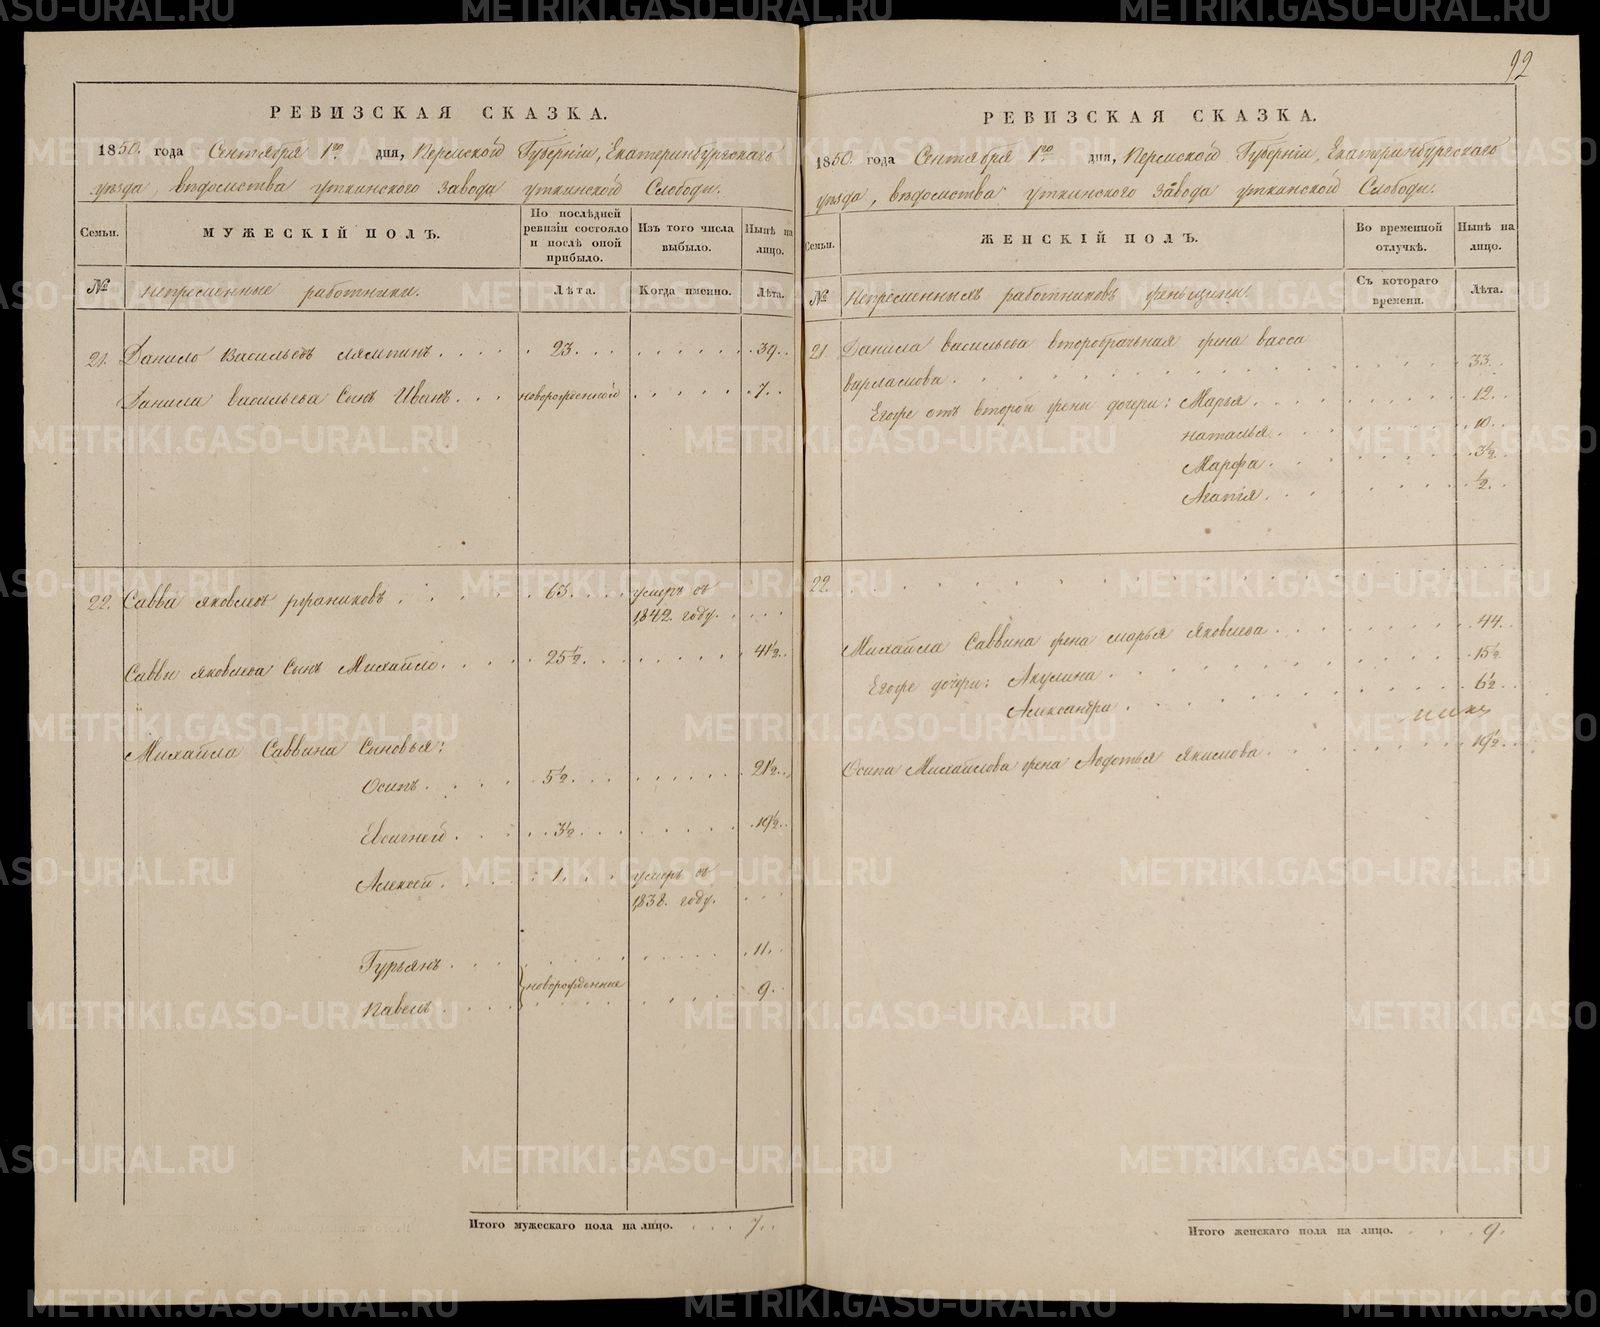 92
РЕВИЗСКАЯ СКАЗКА.
1850. года Сентября 1го дня, Пермской Губерніи, Екатеринбургскаго
уѣзда, вѣдомства уткинского завода уткинской Слободы.
Семьи.
МУЖЕСКІЙ ПОЛЪ.
По послѣдней ревизіи состояло и послѣ оной прибыло.
Изъ того числа выбыло.
Нынѣ на лицо.
№
непременные работники.
Лѣта.
Когда именно.
Лѣта.
21. Данило Васильевъ Лямпинъ. 23. 39.
Данила васильева Сынъ Иванъ. новорожденной 7.
22. Савва яковлевъ ржаниковъ. 63. умеръ въ
1842. году.
Саввы яковлева Сынъ Михайло. 25½. 41½.
Михайла Саввина Сыновья:
Осипъ. 5½. 21½.
Евстигней. 3½. 19½.
Алексей. 1. умеръ въ
1838. году.
Гурьянъ. 11.
новорожденные
Павелъ. 9.
Итого мужескаго пола на лицо. 7.
РЕВИЗСКАЯ СКАЗКА.
1850. года Сентября 1го дня, Пермской Губерніи, Екатеринбургскаго
уѣзда, вѣдомства уткинского завода уткинской Слободы.
Семьи.
ЖЕНСКІЙ ПОЛЪ.
Во временной отлучкѣ.
Нынѣ на лицо.
№
непременныхъ работниковъ женщины.
Съ котораго времени.
Лѣта.
21. Данила васильева второбрачная жена васса
варламова. 33.
Егоже отъ второй жены дочери: Марья. 12.
наталья. 10.
Марфа. 3½.
Агапія. ½.
22.
Михайла Саввина жена марья яковлева. 44.
Егоже дочери: Акулина. 15½.
Александра. 6½.
Осипа Михайлова жена Авдотья Якимова. 19½.
Итого женскаго пола на лицо. 9.
METRIKI.GASO-URAL.RU